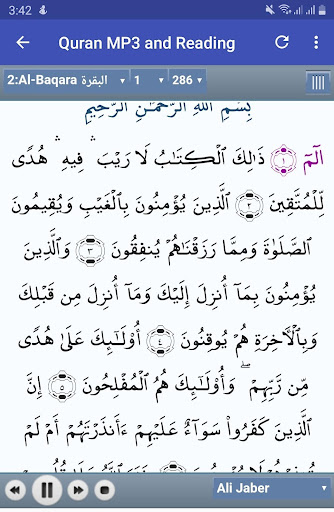 3:42
Quran MP3 and Reading
2:Al-Baqara البقرة 1 286
بِسْمِ ٱللَّهِ ٱلرَّحْمَٰنِ ٱلرَّحِيمِ
الٓمٓ ١ ذَٰلِكَ ٱلْكِتَٰبُ لَا رَيْبَ ۛ فِيهِ ۛ هُدًى
لِّلْمُتَّقِينَ ٢ ٱلَّذِينَ يُؤْمِنُونَ بِٱلْغَيْبِ وَيُقِيمُونَ
ٱلصَّلَوٰةَ وَمِمَّا رَزَقْنَٰهُمْ يُنفِقُونَ ٣ وَٱلَّذِينَ
يُؤْمِنُونَ بِمَآ أُنزِلَ إِلَيْكَ وَمَآ أُنزِلَ مِن قَبْلِكَ
وَبِٱلْءَاخِرَةِ هُمْ يُوقِنُونَ ٤ أُو۟لَٰٓئِكَ عَلَىٰ هُدًى
مِّن رَّبِّهِمْ ۖ وَأُو۟لَٰٓئِكَ هُمُ ٱلْمُفْلِحُونَ ٥ إِنَّ
ٱلَّذِينَ كَفَرُوا۟ سَوَآءٌ عَلَيْهِمْ ءَأَنذَرْتَهُمْ أَمْ لَمْ
Ali Jaber